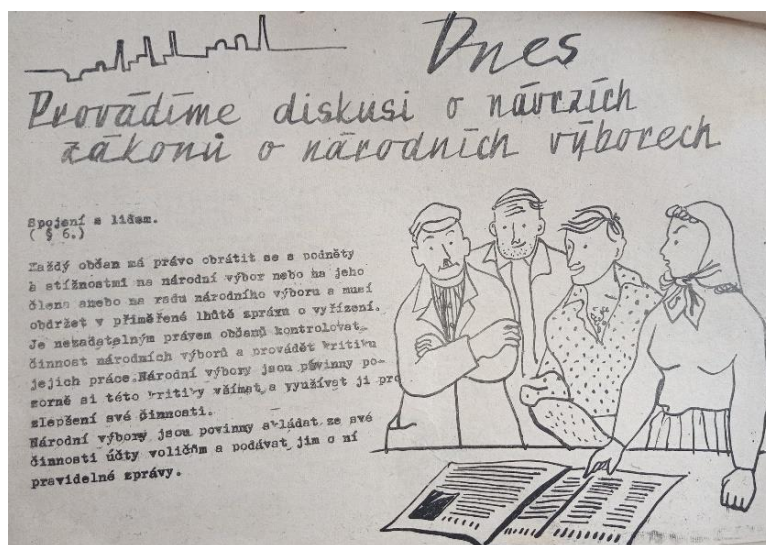 Dnes
Provádíme diskusi o návrzích
zákonů o národních výborech
Spojení s lidem.
( § 6.)
Každý občan má právo obrátit se s podněty
a stížnostmi na národní výbor nebo na jeho
člena anebo na radu národního výboru a musí
obdržet v přiměřené lhůtě zprávu o vyřízení.
Je nezadatelným právem občanů kontrolovat
činnost národních výborů a provádět kritiku
jejich práce.Národní výbory jsou povinny po-
zorně si této kritiky všímat a využívat ji pro
zlepšení své činnosti.
Národní výbory jsou povinny skládat ze své
činnosti účty voličům a podávat jim o ní
pravidelné zprávy.